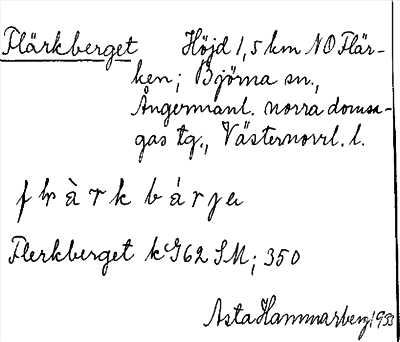 Flärkberget Höjd 1,5 km NO Flär-
ken; Björna sn.,
Ångermanl. norra domsa-
gas tg., Västernorrl. l.
Flerkberget kG62 SM; 350
Asta Hammarberg 1933